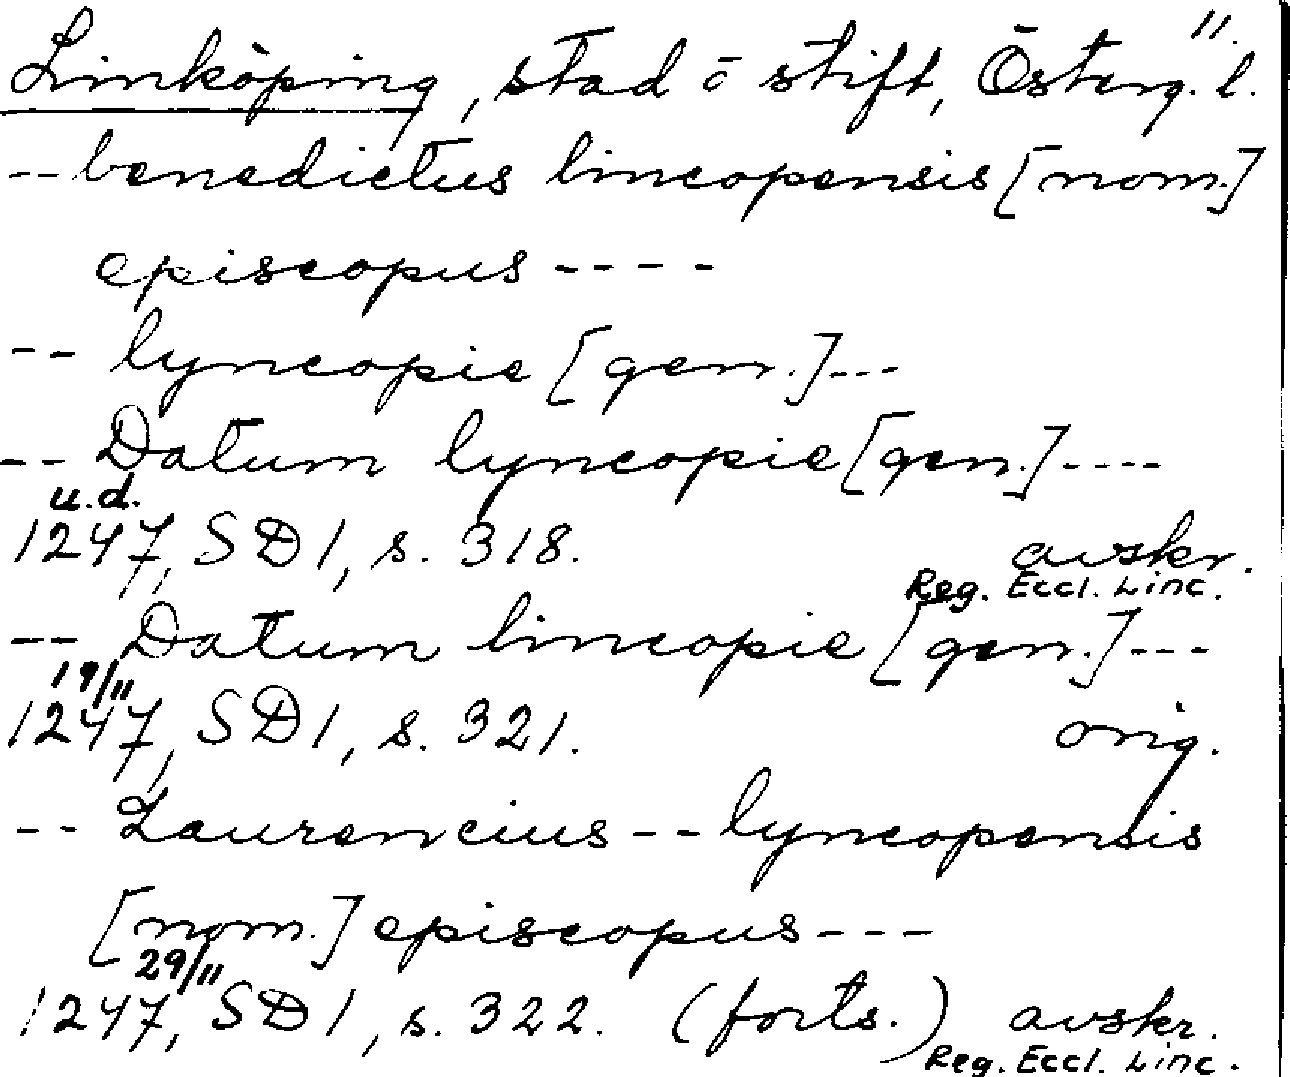 11.
Linköping, stad o stift, Österg. l.
-- benedictus lincopensis [nom.]
episcopus ----
-- lyncopie [gen.] ---
-- Datum lyncopie [gen.] ----
u.d.
1247, SD1, s. 318. avskr.
Reg. Eccl. Linc.
-- Datum lincopie [gen.] ---
19/11
1247, SD1, s. 321. orig.
-- Laurencius -- lyncopensis
[nom.] episcopus ---
29/11
1247, SD1, s. 322. (forts.) avskr.
Reg. Eccl. Linc.